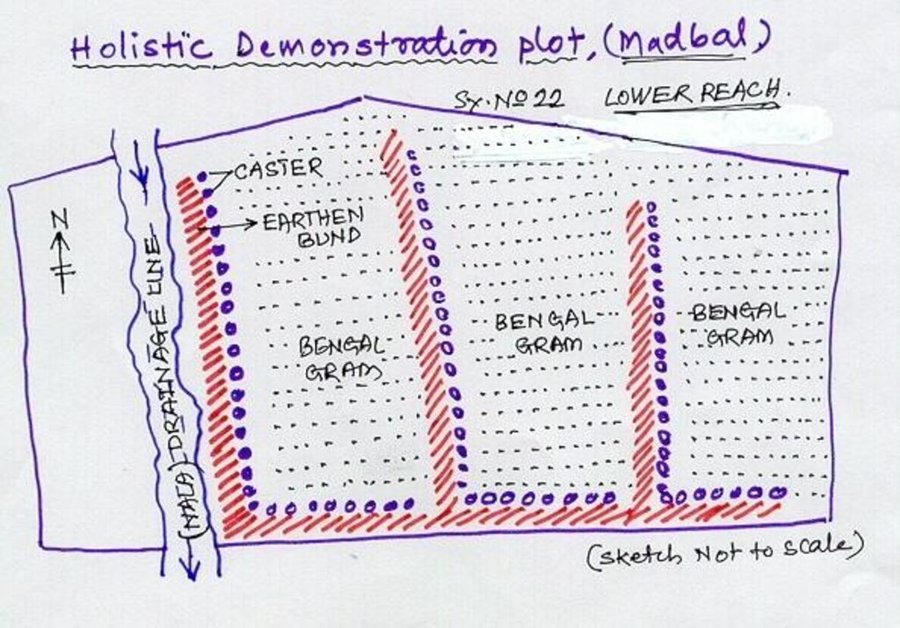 Holistic Demonstration plot, (Madbal)
Sy. No 22 LOWER REACH.
CASTER
EARTHEN
BUND
N
(NALA) DRAINAGE LINE
BENGAL
GRAM
BENGAL
GRAM
BENGAL
GRAM
(Sketch Not to scale)